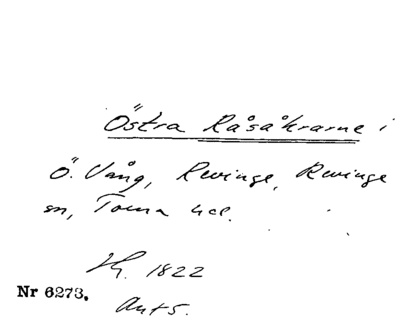 Östra Råsåkrarne i
Ö. Vång, Revinge, Revinge
sn, Torna hd.
1822
Nr 6273.
Ant 5.